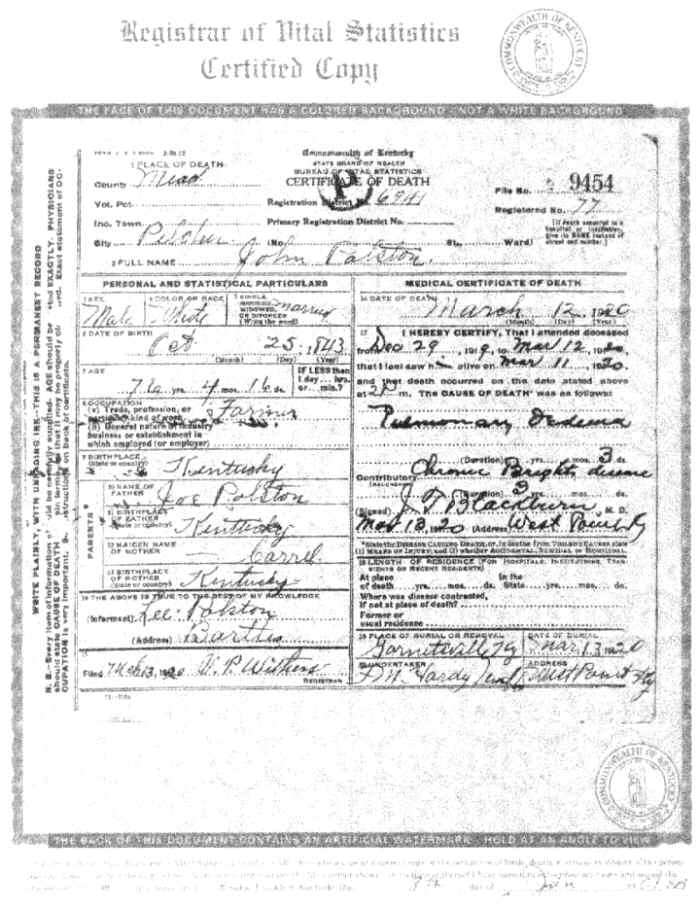 Registrar of Vital Statistics
Certified Copy
COMMONWEALTH OF KENTUCKY
THE FACE OF THIS DOCUMENT HAS A COLORED BACKGROUND - NOT A WHITE BACKGROUND
Commonwealth of Kentucky
STATE BOARD OF HEALTH
BUREAU OF VITAL STATISTICS
CERTIFICATE OF DEATH
1 PLACE OF DEATH
County Mead
Vot. Pct.
Inc. Town
City
Registration District No. 6941
Primary Registration District No.
(No. St., Ward)
File No. 9454
Registered No. 77
(If death occurred in a hospital or institution, give its NAME instead of street and number.)
2 FULL NAME John Polston.
WRITE PLAINLY, WITH UNFADING INK—THIS IS A PERMANENT RECORD
PERSONAL AND STATISTICAL PARTICULARS
3 SEX Male
4 COLOR OR RACE White
5 SINGLE, MARRIED, WIDOWED, OR DIVORCED (Write the word) Married
6 DATE OF BIRTH
Oct 25, 1843
(Month) (Day) (Year)
7 AGE
76 yrs. 4 mos. 16 ds.
IF LESS than 1 day... hrs. or... min.?
8 OCCUPATION
(a) Trade, profession, or particular kind of work Farmer
(b) General nature of industry
business or establishment in
which employed (or employer)
9 BIRTHPLACE
(State or country) Kentucky
PARENTS
10 NAME OF FATHER Joe Polston
11 BIRTHPLACE OF FATHER
(State or country) Kentucky
12 MAIDEN NAME OF MOTHER Carrel
13 BIRTHPLACE OF MOTHER
(State or country) Kentucky
14 THE ABOVE IS TRUE TO THE BEST OF MY KNOWLEDGE
(Informant) Lee Polston
(Address)
15
Filed Mch 13, 1920 W. P. Withers
REGISTRAR
MEDICAL CERTIFICATE OF DEATH
16 DATE OF DEATH
March 12, 1920
(Month) (Day) (Year)
17 I HEREBY CERTIFY, That I attended deceased
from Dec 29, 1919, to Mar 12, 1920,
that I last saw him alive on Mar 11, 1920,
and that death occurred on the date stated above
at m. The CAUSE OF DEATH* was as follows:
Pulmonary Oedema
(Duration) yrs. mos. 3 ds.
Contributory Chronic Brights disease
(Duration) 3 yrs. mos. ds.
(Signed) J. T. Blackburn, M. D.
Mar 13, 1920 (Address) West Point Ky
*State the DISEASE CAUSING DEATH, or, in deaths from VIOLENT CAUSES state (1) MEANS OF INJURY; and (2) whether ACCIDENTAL, SUICIDAL or HOMICIDAL.
18 LENGTH OF RESIDENCE (FOR HOSPITALS, INSTITUTIONS, TRANSIENTS OR RECENT RESIDENTS)
At place of death yrs. mos. ds. In the State yrs. mos. ds.
Where was disease contracted,
if not at place of death?
Former or
usual residence
19 PLACE OF BURIAL OR REMOVAL Garnettsville Ky
DATE OF BURIAL Mar 13 1920
20 UNDERTAKER
Hardy
ADDRESS West Point Ky
COMMONWEALTH OF KENTUCKY
THE BACK OF THIS DOCUMENT CONTAINS AN ARTIFICIAL WATERMARK - HOLD AT AN ANGLE TO VIEW